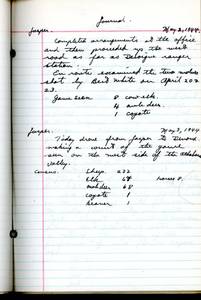 Journal.
Jasper. May 2, 1944.
Complete arrangements at the office
and then proceeded up the west
road as far as Decoigne ranger
station.
En route examined the two mooses
shot by Bert White on April 20th
23.
Game seen 8 cow elk.
4 mule deer.
1 coyote
Jasper. May 3, 1944
Today drove from Jasper to Devona
making a count of the game
seen on the west side of the Athabasca
Valley.
Census. Sheep 222
Elk 64 horses 8.
Mule deer 68
coyote 1
beaver 1